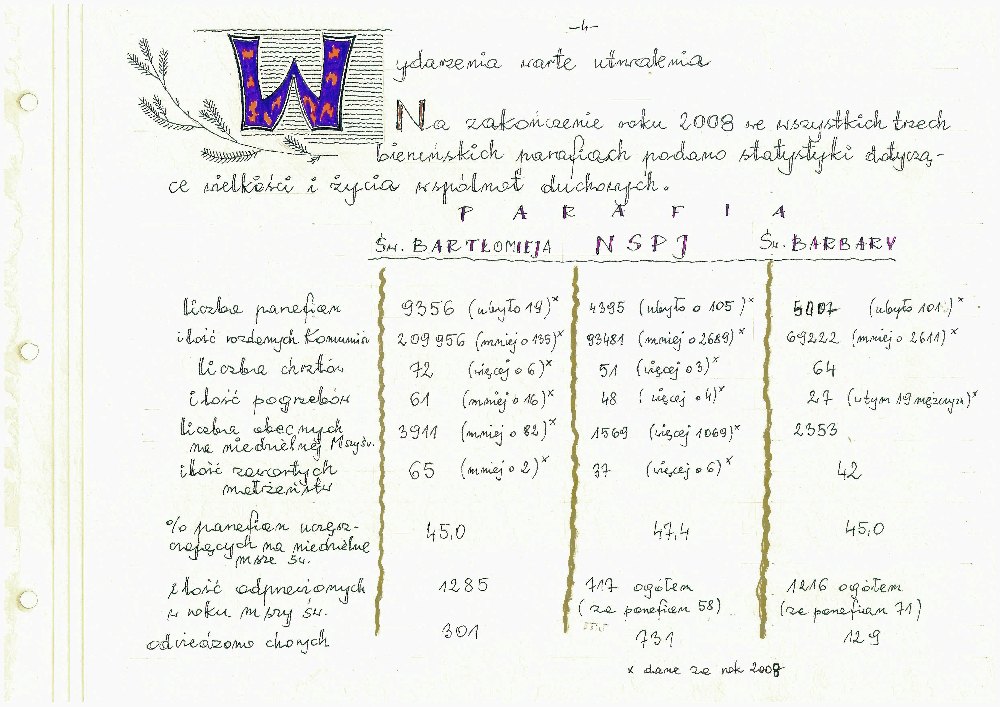 -4-
Wydarzenia warte utrwalenia
Na zakończenie roku 2008 we wszystkich trzech
bieruńskich parafiach podano statystyki dotyczą-
ce wielkości i życia wspólnot duchowych.
PARAFIA
Św. BARTŁOMIEJA NSPJ Św. BARBARY
liczba parafian 9356 (ubyło 19)x 4395 (ubyło o 105)x (ubyło 101)x
ilość rozdanych Komunii 209956 (mniej o 135)x 93481 (mniej o 2689)x 69222 (mniej o 2611)x
liczba chrztów 72 (więcej o 6)x 51 (więcej o 3)x 64
ilość pogrzebów 61 (mniej o 16)x 48 (więcej o 4)x 27 (w tym 19 mężczyzn)x
liczba obecnych
na niedzielnej Mszy św. 3911 (mniej o 82)x 1569 (więcej 1069)x 2353
ilość zawartych
małżeństw 65 (mniej o 2)x 37 (więcej o 6)x 42
% parafian uczęsz-
czających na niedzielne
msze św. 45,0 47,4 45,0
ilość odprawionych 1285 717 ogółem 1216 ogółem
w roku mszy św. (za parafian 58) (za parafian 71)
odwiedzono chorych 301 731 129
x dane za rok 2008